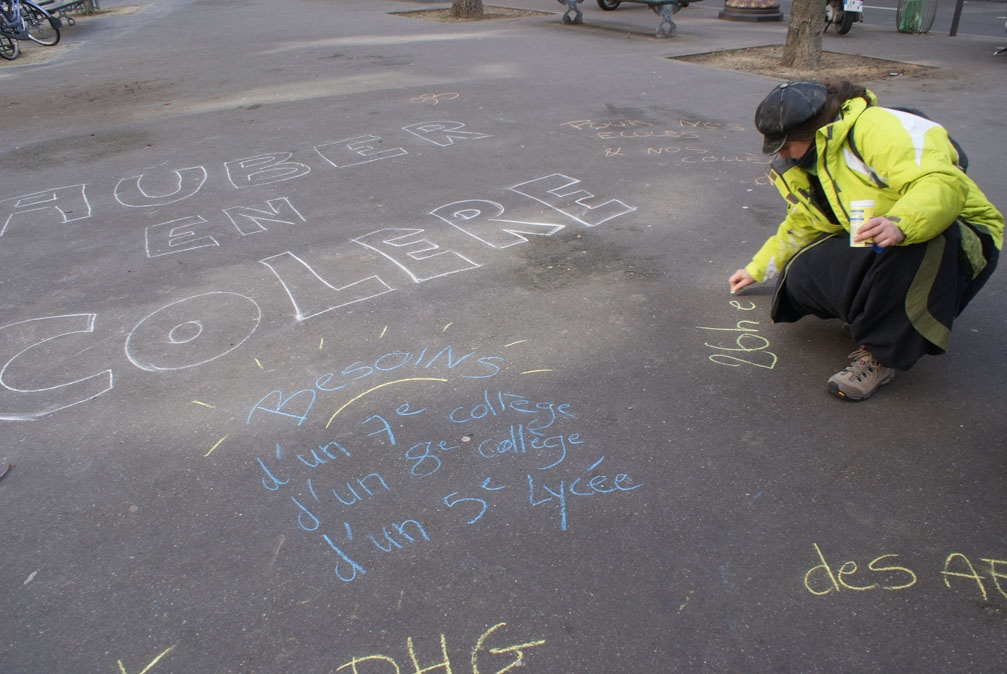 AUBER
EN
COLERE
POUR NOS
ECOLES
& NOS COLLE
Besoins
d'un 7e collège
d'un 8e collège
d'un 5e Lycée
des AE
DHG